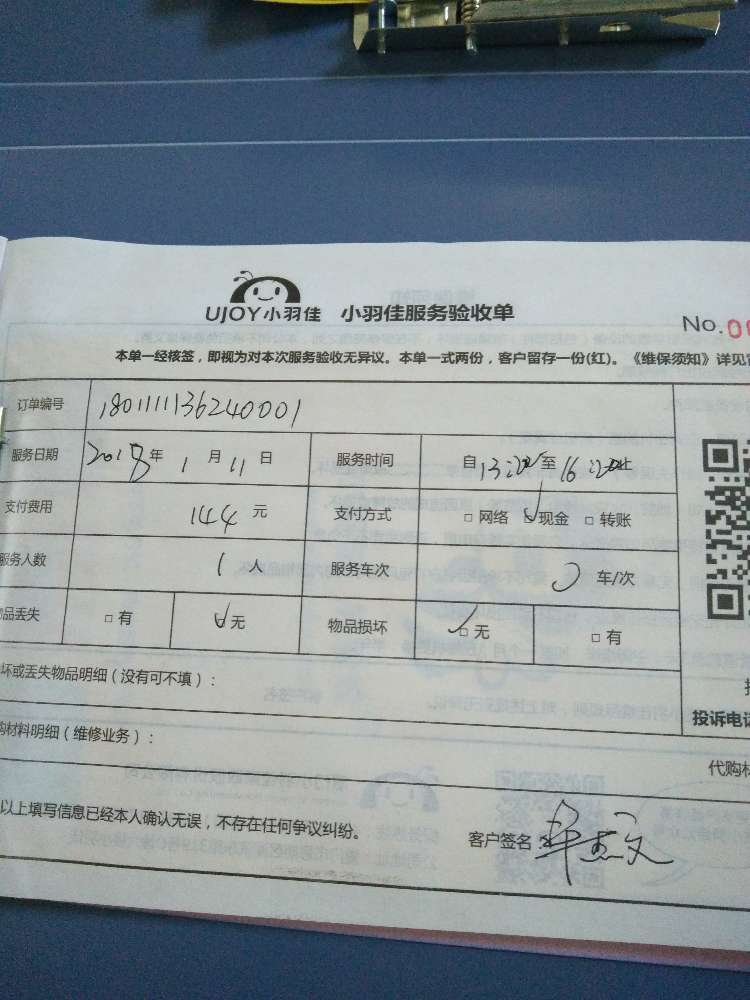 UJOY小羽佳 小羽佳服务验收单
No.0
本单一经核签，即视为对本次服务验收无异议。本单一式两份，客户留存一份(红)。《维保须知》详见
订单编号 180111136240001
服务日期 2018年 1月 11日 服务时间 自13:20至16:20止
支付费用 144元 支付方式 □网络 ☑现金 □转账
服务人数 1人 服务车次 车/次
品丢失 □有 ☑无 物品损坏 ☑无 □有
坏或丢失物品明细（没有可不填）：
投诉电话
购材料明细（维修业务）：
代购材
以上填写信息已经本人确认无误，不存在任何争议纠纷。 客户签名